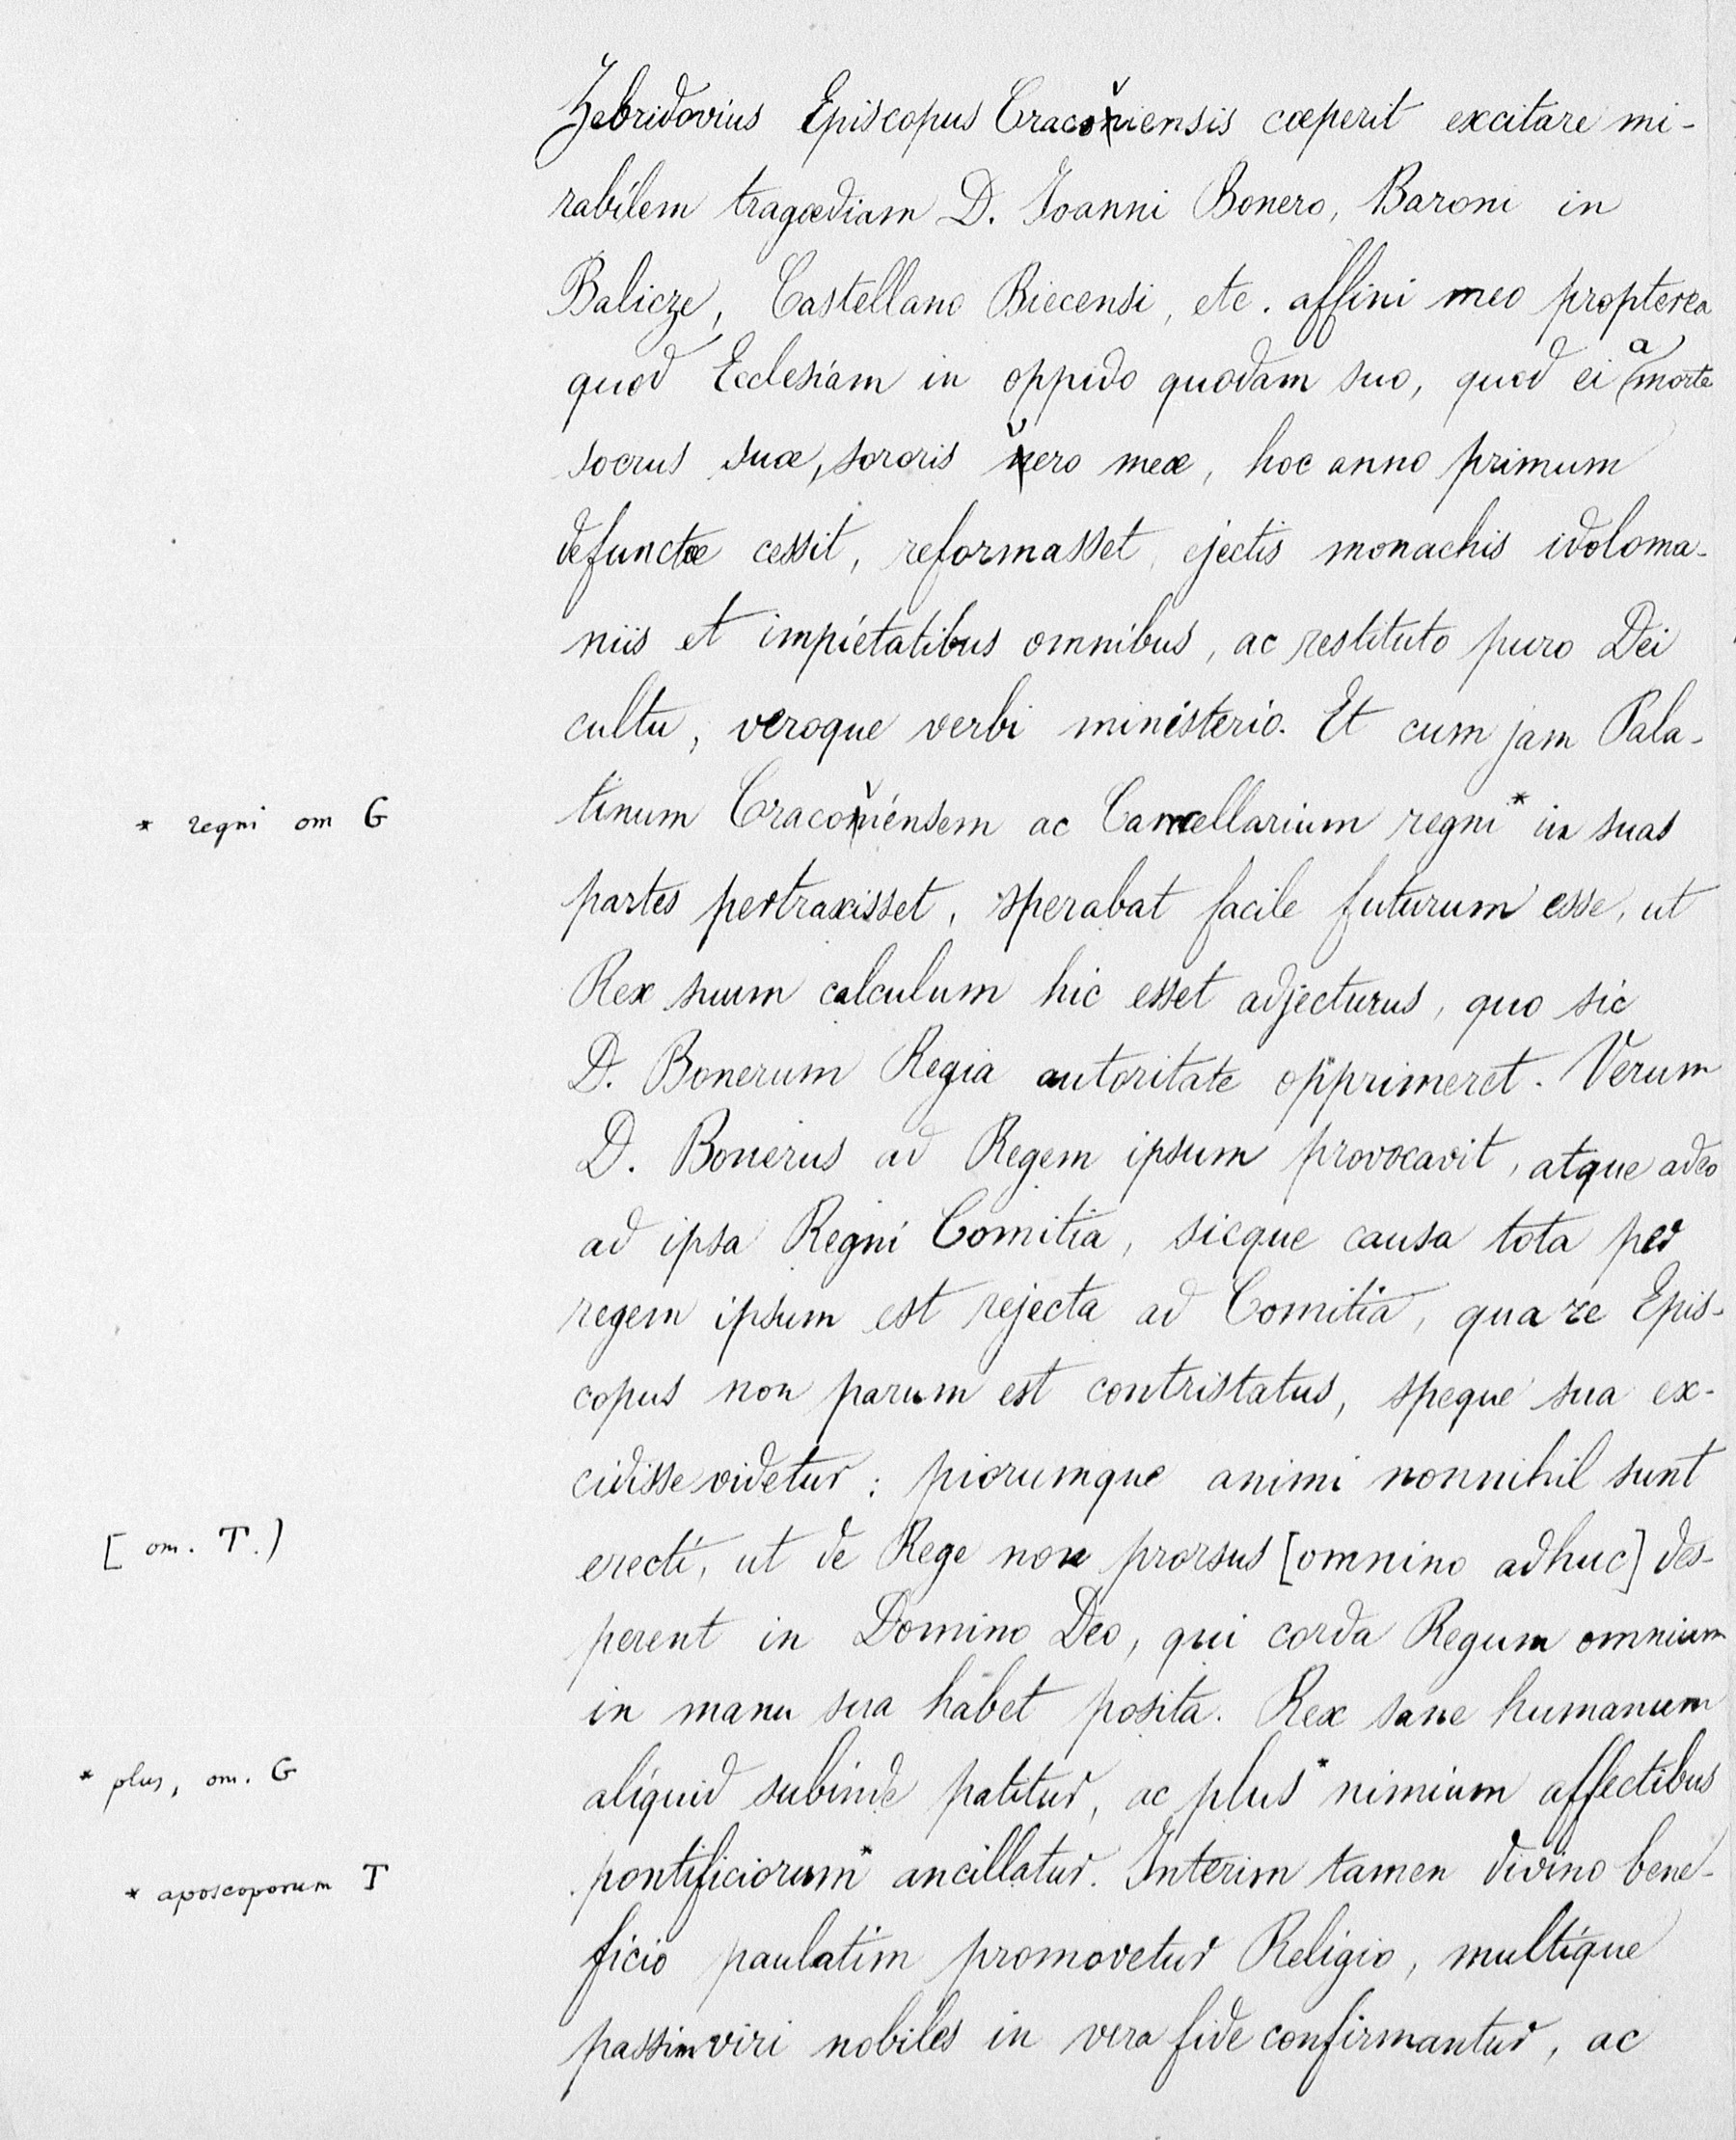 Zebridovius Episcopus Cracoviensis cœperit excitare mi-
rabilem tragœdiam D. Joanni Bonero, Baroni in
Balicze, Castellano Biecensi, etc. affini meo propterea
quod Ecclesiam in oppido quodam suo, quod ei a morte
socrus suæ, sororis vero meæ, hoc anno primum
defunctæ cessit, reformasset, ejectis monachis idoloma-
niis et impietatibus omnibus, ac restituto puro Dei
cultu, veroque verbi ministerio. Et cum jam Pala-
* regni om G
tinum Cracoviensem ac Cancellarium regni* in suas
partes pertraxisset, sperabat facile futurum esse, ut
Rex suum calculum hic esset adjecturus, quo sic
D. Bonerum Regia autoritate opprimeret. Verum
D. Bonerus ad Regem ipsum provocavit, atque adeo
ad ipsa Regni Comitia, sicque causa tota per
regem ipsum est rejecta ad Comitia, qua re Epis-
copus non parum est contristatus, speque sua ex-
cidisse videtur: piorumque animi nonnihil sunt
[ om. T.)
erecti, ut de Rege non prorsus [omnino adhuc] des-
perent in Domino Deo, qui corda Regum omnium
in manu sua habet posita. Rex sane humanum
* plus, om. G
aliquid subinde patitur, ac plus* nimium affectibus
* aposcoporum T
pontificiorum* ancillatur. Interim tamen divino bene-
ficio paulatim promovetur Religio, multique
passim viri nobiles in vera fide confirmantur, ac